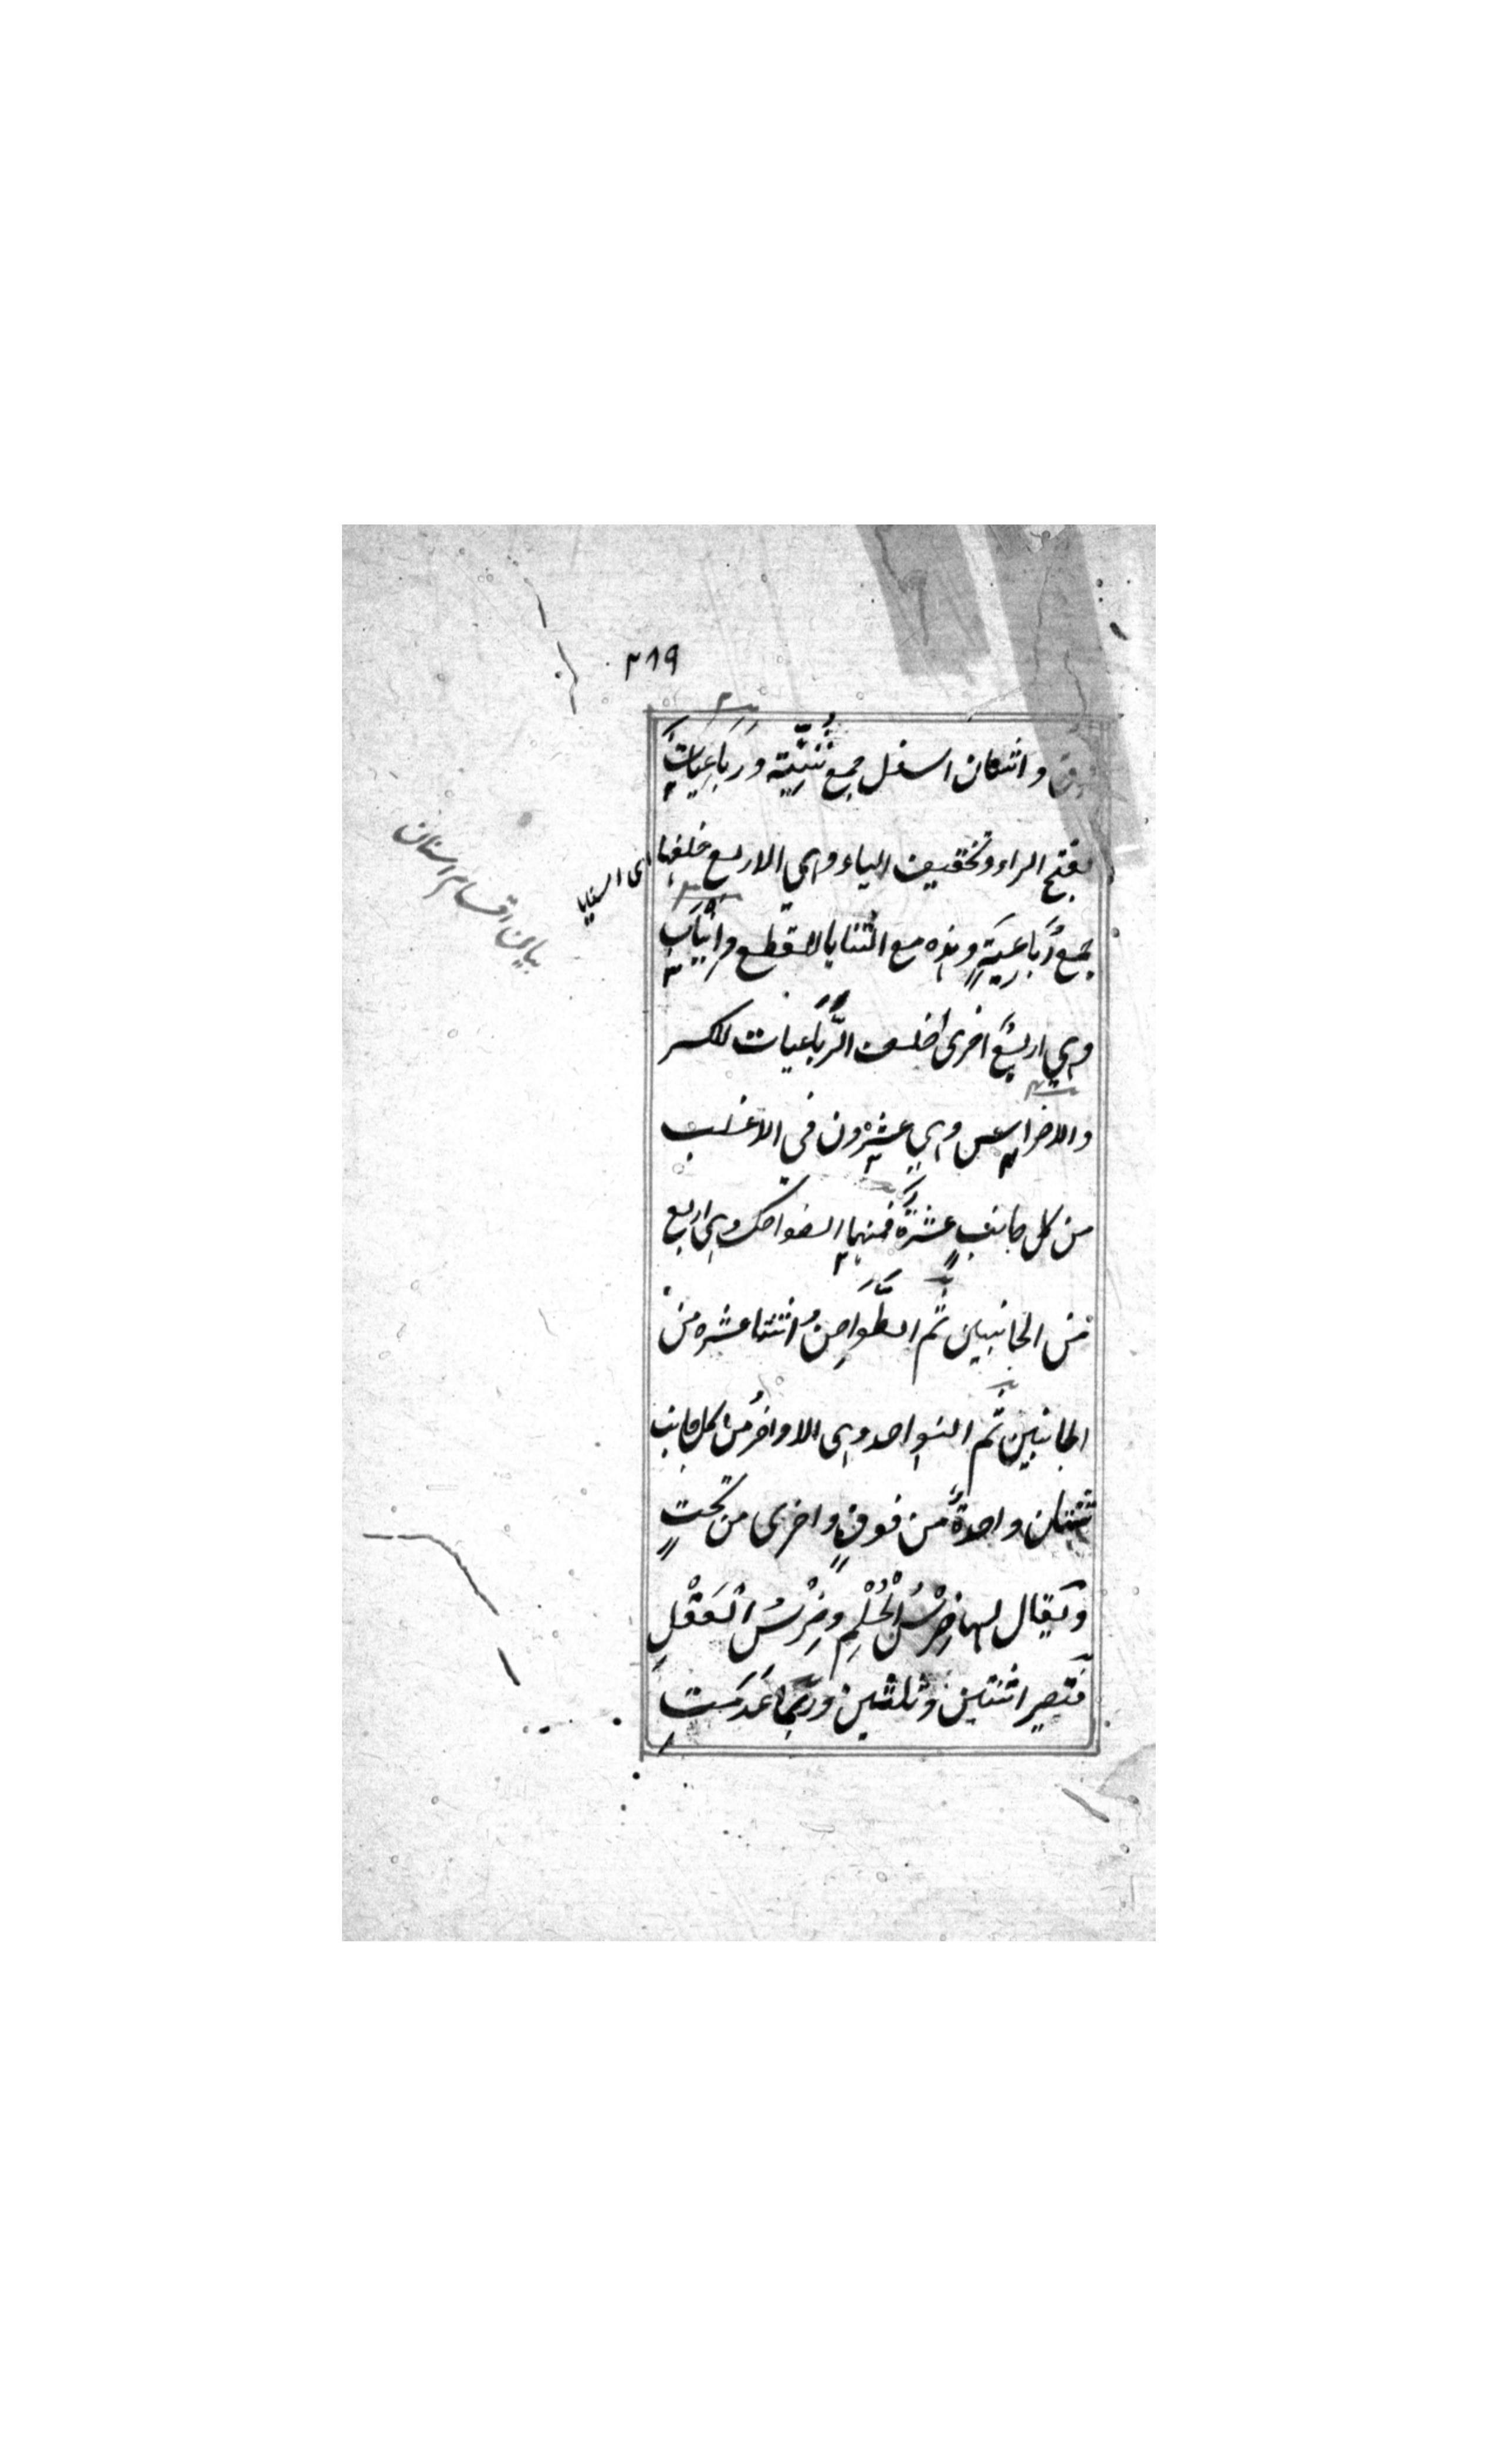 ٢٨٩
فوق واثنتان اسفل جمع ثَنِيّة ورَبَاعِيَات
بفتح الراء وتخفيف الياء وهي الاربع خلفها
اى الثنايا
بيان اقسام اسنان
جمع رَبَاعِيَةٍ وهذه مع الثنايا للقطع واَنْيَابٍ
وهي اربعٌ اخرى خلف الرَّبَاعيات للكسر
والاضراس وهي عشرون في الاغلب
من كل جانبٍ عشرةٌ فمنها الضواحك وهى اربع
من الجانبين ثم الطَّوَاحِنُ اثنتا عشره من
الجانبين ثم النواجد وهى الاواخرُ من كل جانب
ثنتان واحدةٌ من فوقٍ واخرى من تحتٍ
ويقال لها ضِرْسُ الْحُلْمِ وضِرْسُ الْعَقْلِ
فتصير اثنتين وثلثين وربّما عَدَمَتِ